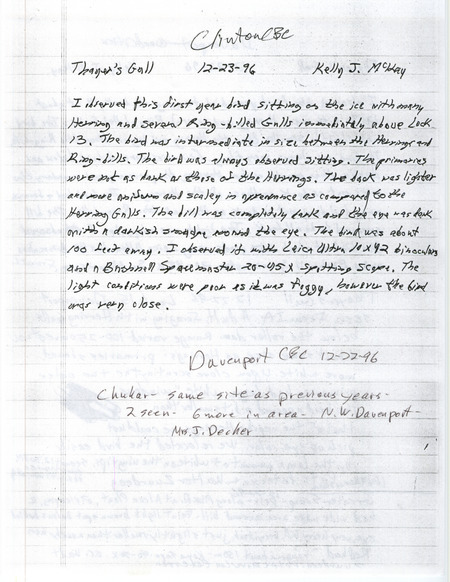 Clinton CBC
Thayer's Gull 12-23-96 Kelly J. McKay
I observed this first year bird sitting on the ice with many
Herring and several Ring-billed Gulls immediately above Lock
13. The bird was intermediate in size between the Herrings and
Ring-bills. The bird was always observed sitting. The primaries
were not as dark as those of the Herrings. The back was lighter
and more uniform and scaley in apperence as compared to the
Herring Gulls. The bill was completely dark and the eye was dark
with a darkish smudge around the eye. The bird was about
100 feet away. I observed it with Leica Ultra 10x42 binoculars
and a Bushnell Spacemaster 20-45x spotting scope. The
light conditions were poor as it was foggy, however the bird
was very close.
Davenport CBC 12-22-96
Chukar- same site as previous years-
2 seen- 6 more in area- N.W. Davenport-
Mrs. J. Decker